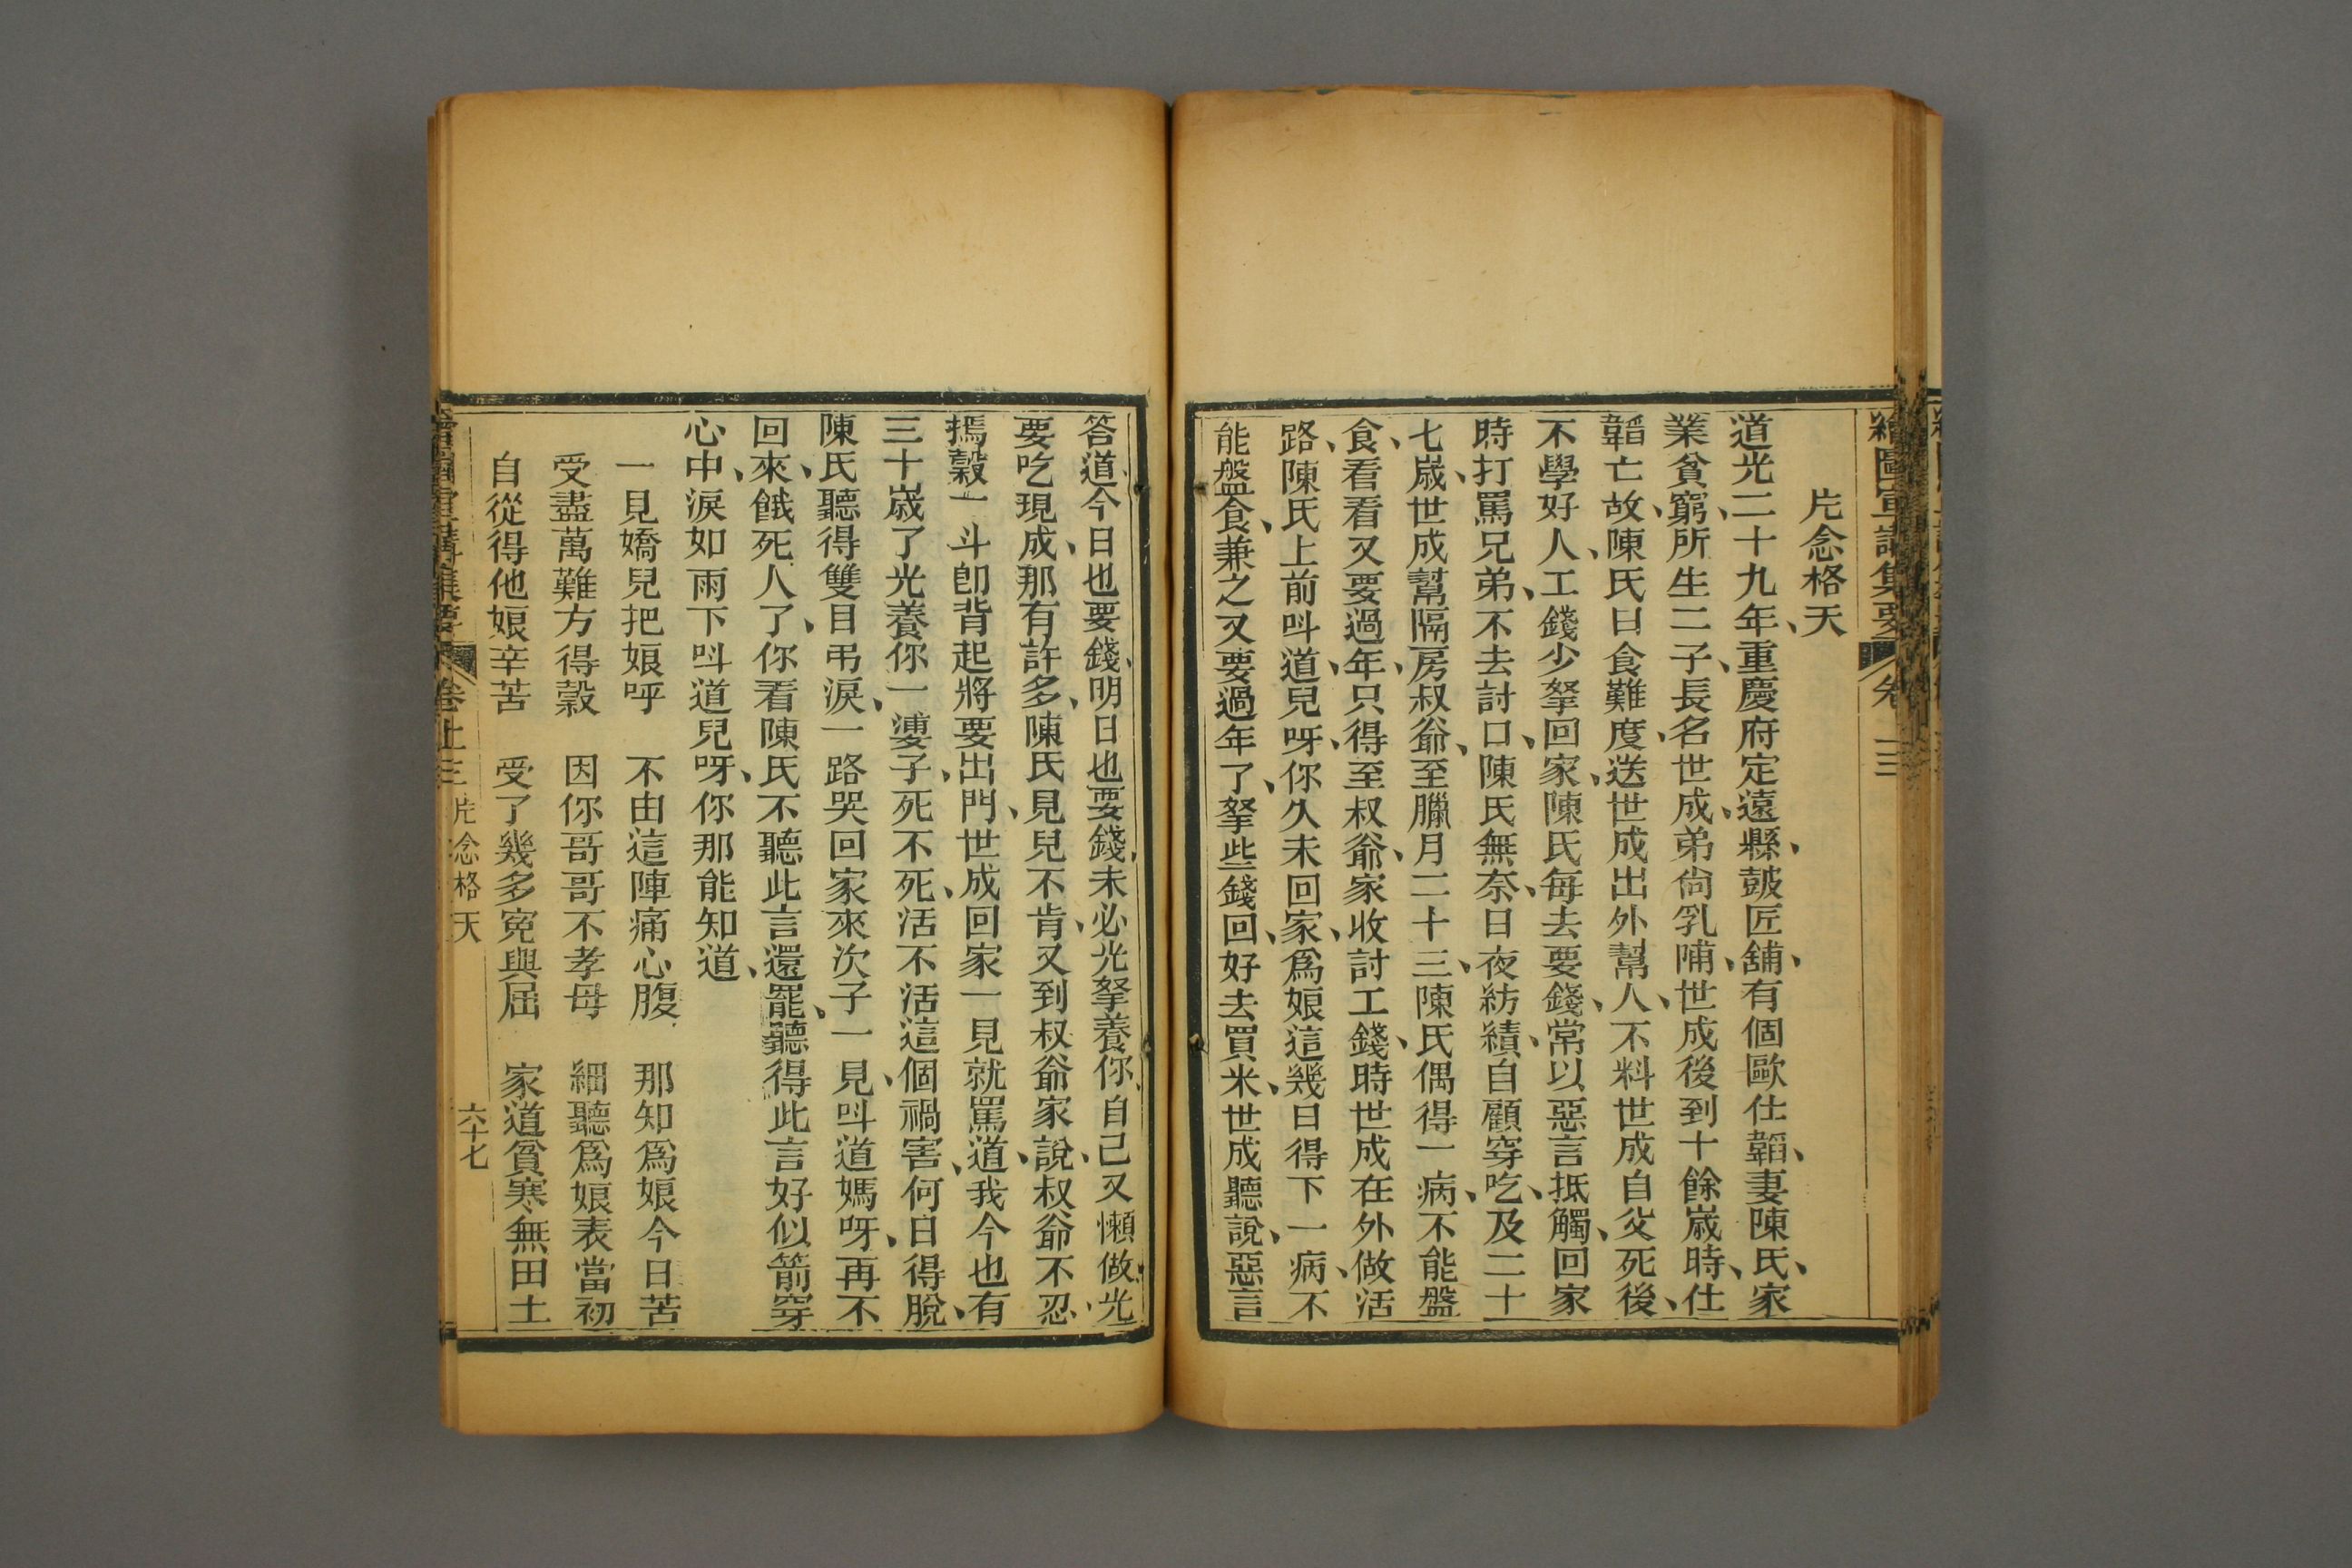 繪圖宣講集要 卷三
片念格天
道光二十九年、重慶府定遠縣、皷匠舖、有個歐仕韜、妻陳氏、家
業貧窮、所生二子、長名世成、弟尙乳哺、世成後到十餘歲時、仕
韜亡故、陳氏日食難度、送世成出外幫人、不料世成自父死後、
不學好人、工錢少拏回家、陳氏每去要錢、常以惡言抵觸、回家
時打罵兄弟、不去討口、陳氏無奈、日夜紡績、自顧穿吃、及二十
七歲、世成幫隔房叔爺、至臘月二十三、陳氏偶得一病、不能盤
食、看看又要過年、只得至叔爺、家收討工錢、時世成在外做活
路、陳氏上前呌道、兒呀、你久未回家、爲娘這幾日得下一病、不
能盤食、兼之又要過年了、拏些錢回、好去買米、世成聽說、惡言
答道、今日也要錢、明日也要錢、未必光拏養你、自己又懶做、光
要吃現成、那有許多、陳氏見兒不肯、又到叔爺家、說叔爺不忍、
撝穀一斗、卽背起將要出門、世成回家一見就罵道、我今也有
三十歲了、光養你一澷子、死不死、活不活、這個禍害、何日得脫、
陳氏聽得雙目弔淚、一路哭回家來、次子一見、呌道媽呀、再不
回來、餓死人了、你看陳氏不聽此言還罷、聽得此言、好似箭穿
心中、淚如雨下、呌道兒呀、你那能知道、
一見嬌兒把娘呼 不由這陣痛心腹 那知爲娘今日苦
受盡萬難方得穀 因你哥哥不孝母 細聽爲娘表當初
自從得他娘辛苦 受了幾多寃與屈 家道貧寒無田土
卷上三 片念格天 六十七